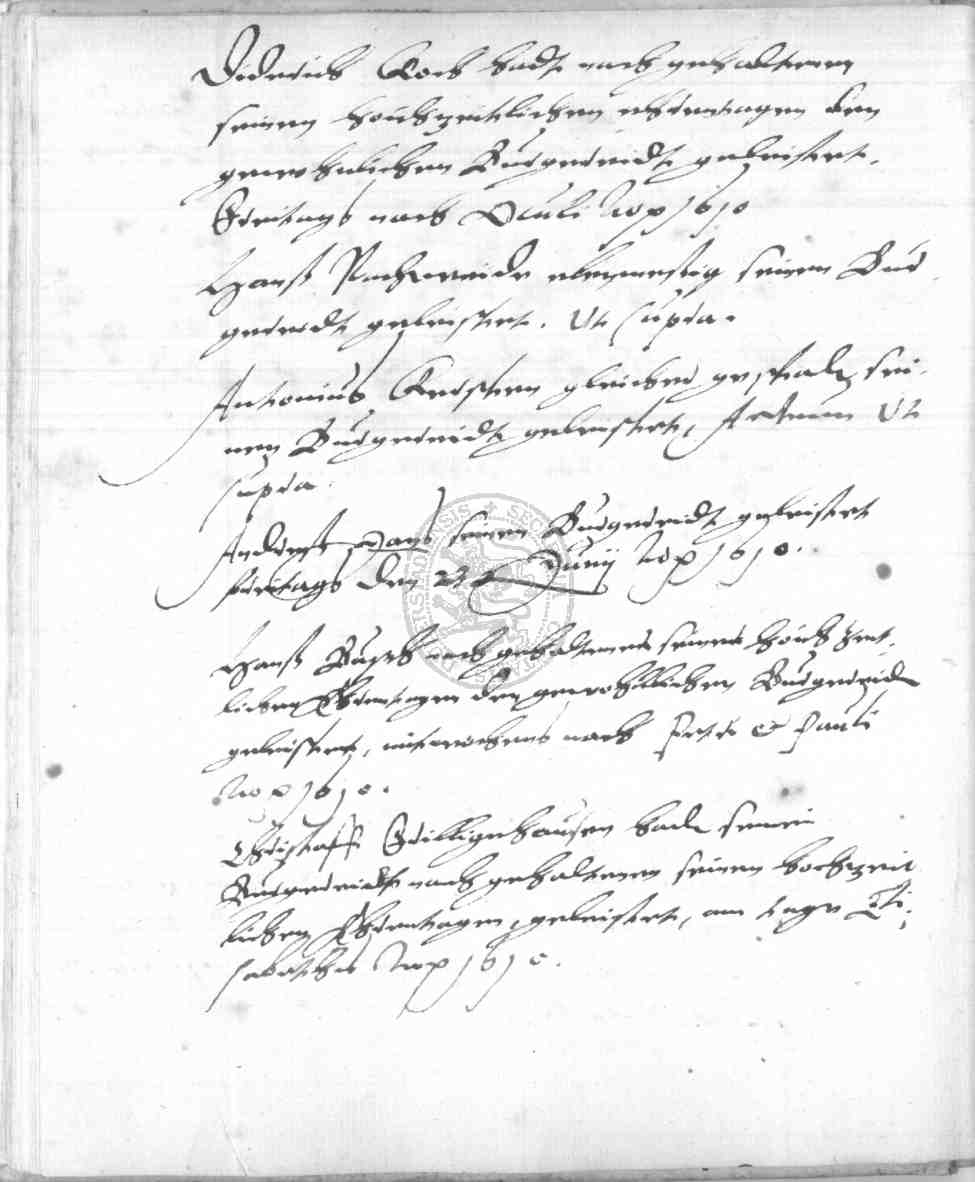 Diderich Koch hadt nach gehaltenen
seinen hochzeitlichen ehrentagen den
gewohnlichen Burgereidt geleistet.
Freitags nach Oculi Aõ 1610
Hanß ebenmessig seinen Bur
gereidt geleistet. Ut supra.
Antonius Kersten gleicher gestaldt sei-
nen Burgereidt geleistet, Actum Ut
supra.
Andreß seinen Burgereidt geleistet
freitags den Junij Aõ 1610.
Hanß Busch nach gehaltenen seinen hochzeit-
lichen Ehrentagen den gewohnlichen Burgereidt
geleistet, mitwochens nach Petri & Pauli
Aõ 1610.
Christoff Grilligehausen hadt seinen
Burgereidt nach gehaltenen seinen hochzeit
lichen Ehrentagen, geleistet, am tage
Aõ 1610.